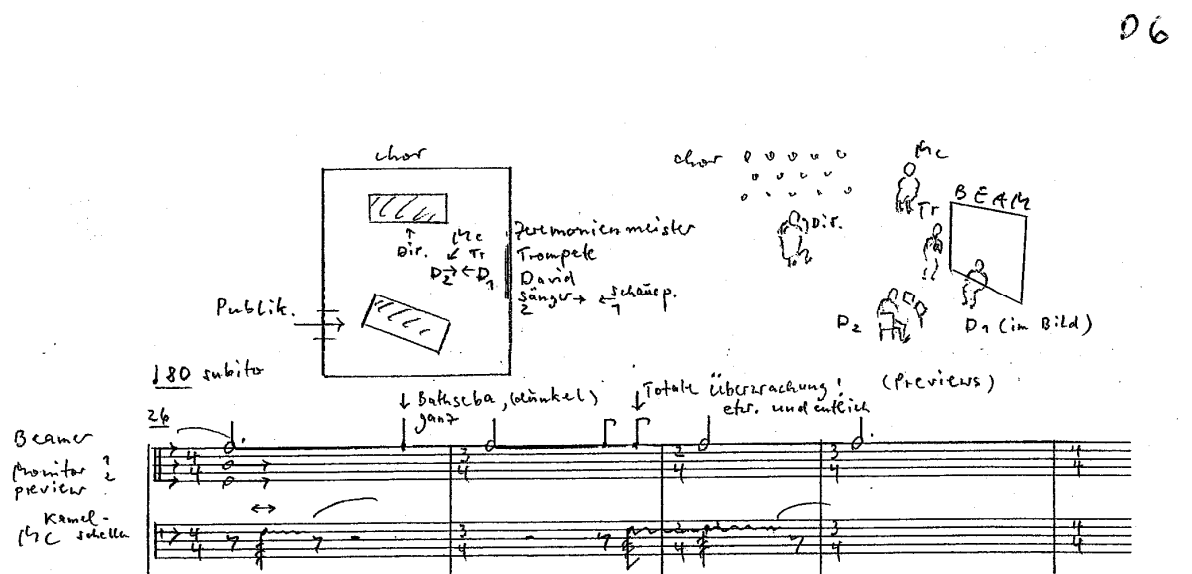 D 6
chor
Dir.
Mc
Tr
D2 → ← D1
Zeremonienmeister
Trompete
David
sänger → ← schausp.
2 1
Publik.
chor
Mc
Dir.
Tr
BEAM
D2
D1 (im Bild)
♩80 subito
26
↓ Bathseba, (dunkel)
ganz
↓ Totale Überwachung!
etw. undeutlich
(Previews)
Beamer
monitor 1
preview 2
Kamel-
Mc schellen
4 4
3 4
2 4
3 4
4 4
4 4
3 4
2 4
3 4
4 4